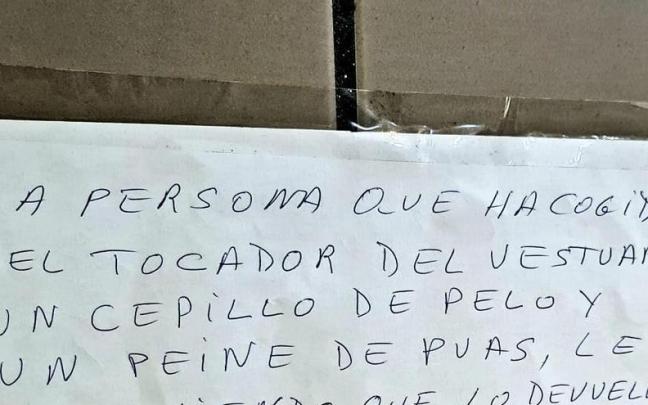 A PERSONA QUE HA COGID
EL TOCADOR DEL VESTUAR
UN CEPILLO DE PELO Y
UN PEINE DE PUAS, LE
QUE LO DEVUEL